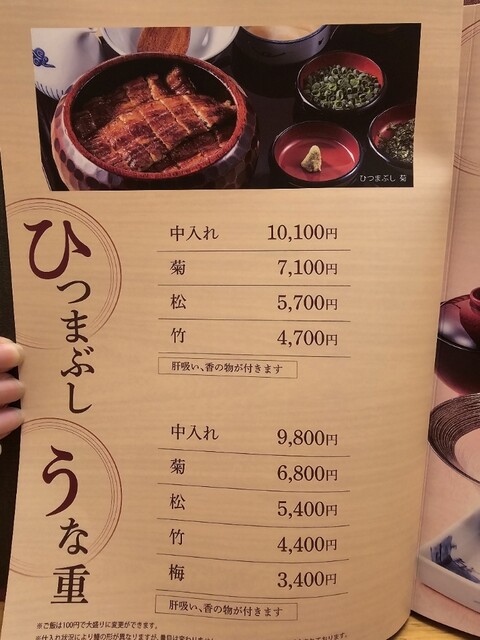 ひつまぶし 菊
ひつまぶし
中入れ 10,100円
菊 7,100円
松 5,700円
竹 4,700円
肝吸い、香の物が付きます
うな重
中入れ 9,800円
菊 6,800円
松 5,400円
竹 4,400円
梅 3,400円
肝吸い、香の物が付きます
※ご飯は100円で大盛りに変更ができます。
※仕入れ状況により鰻の形が異なりますが、量目は変わりません
ております。